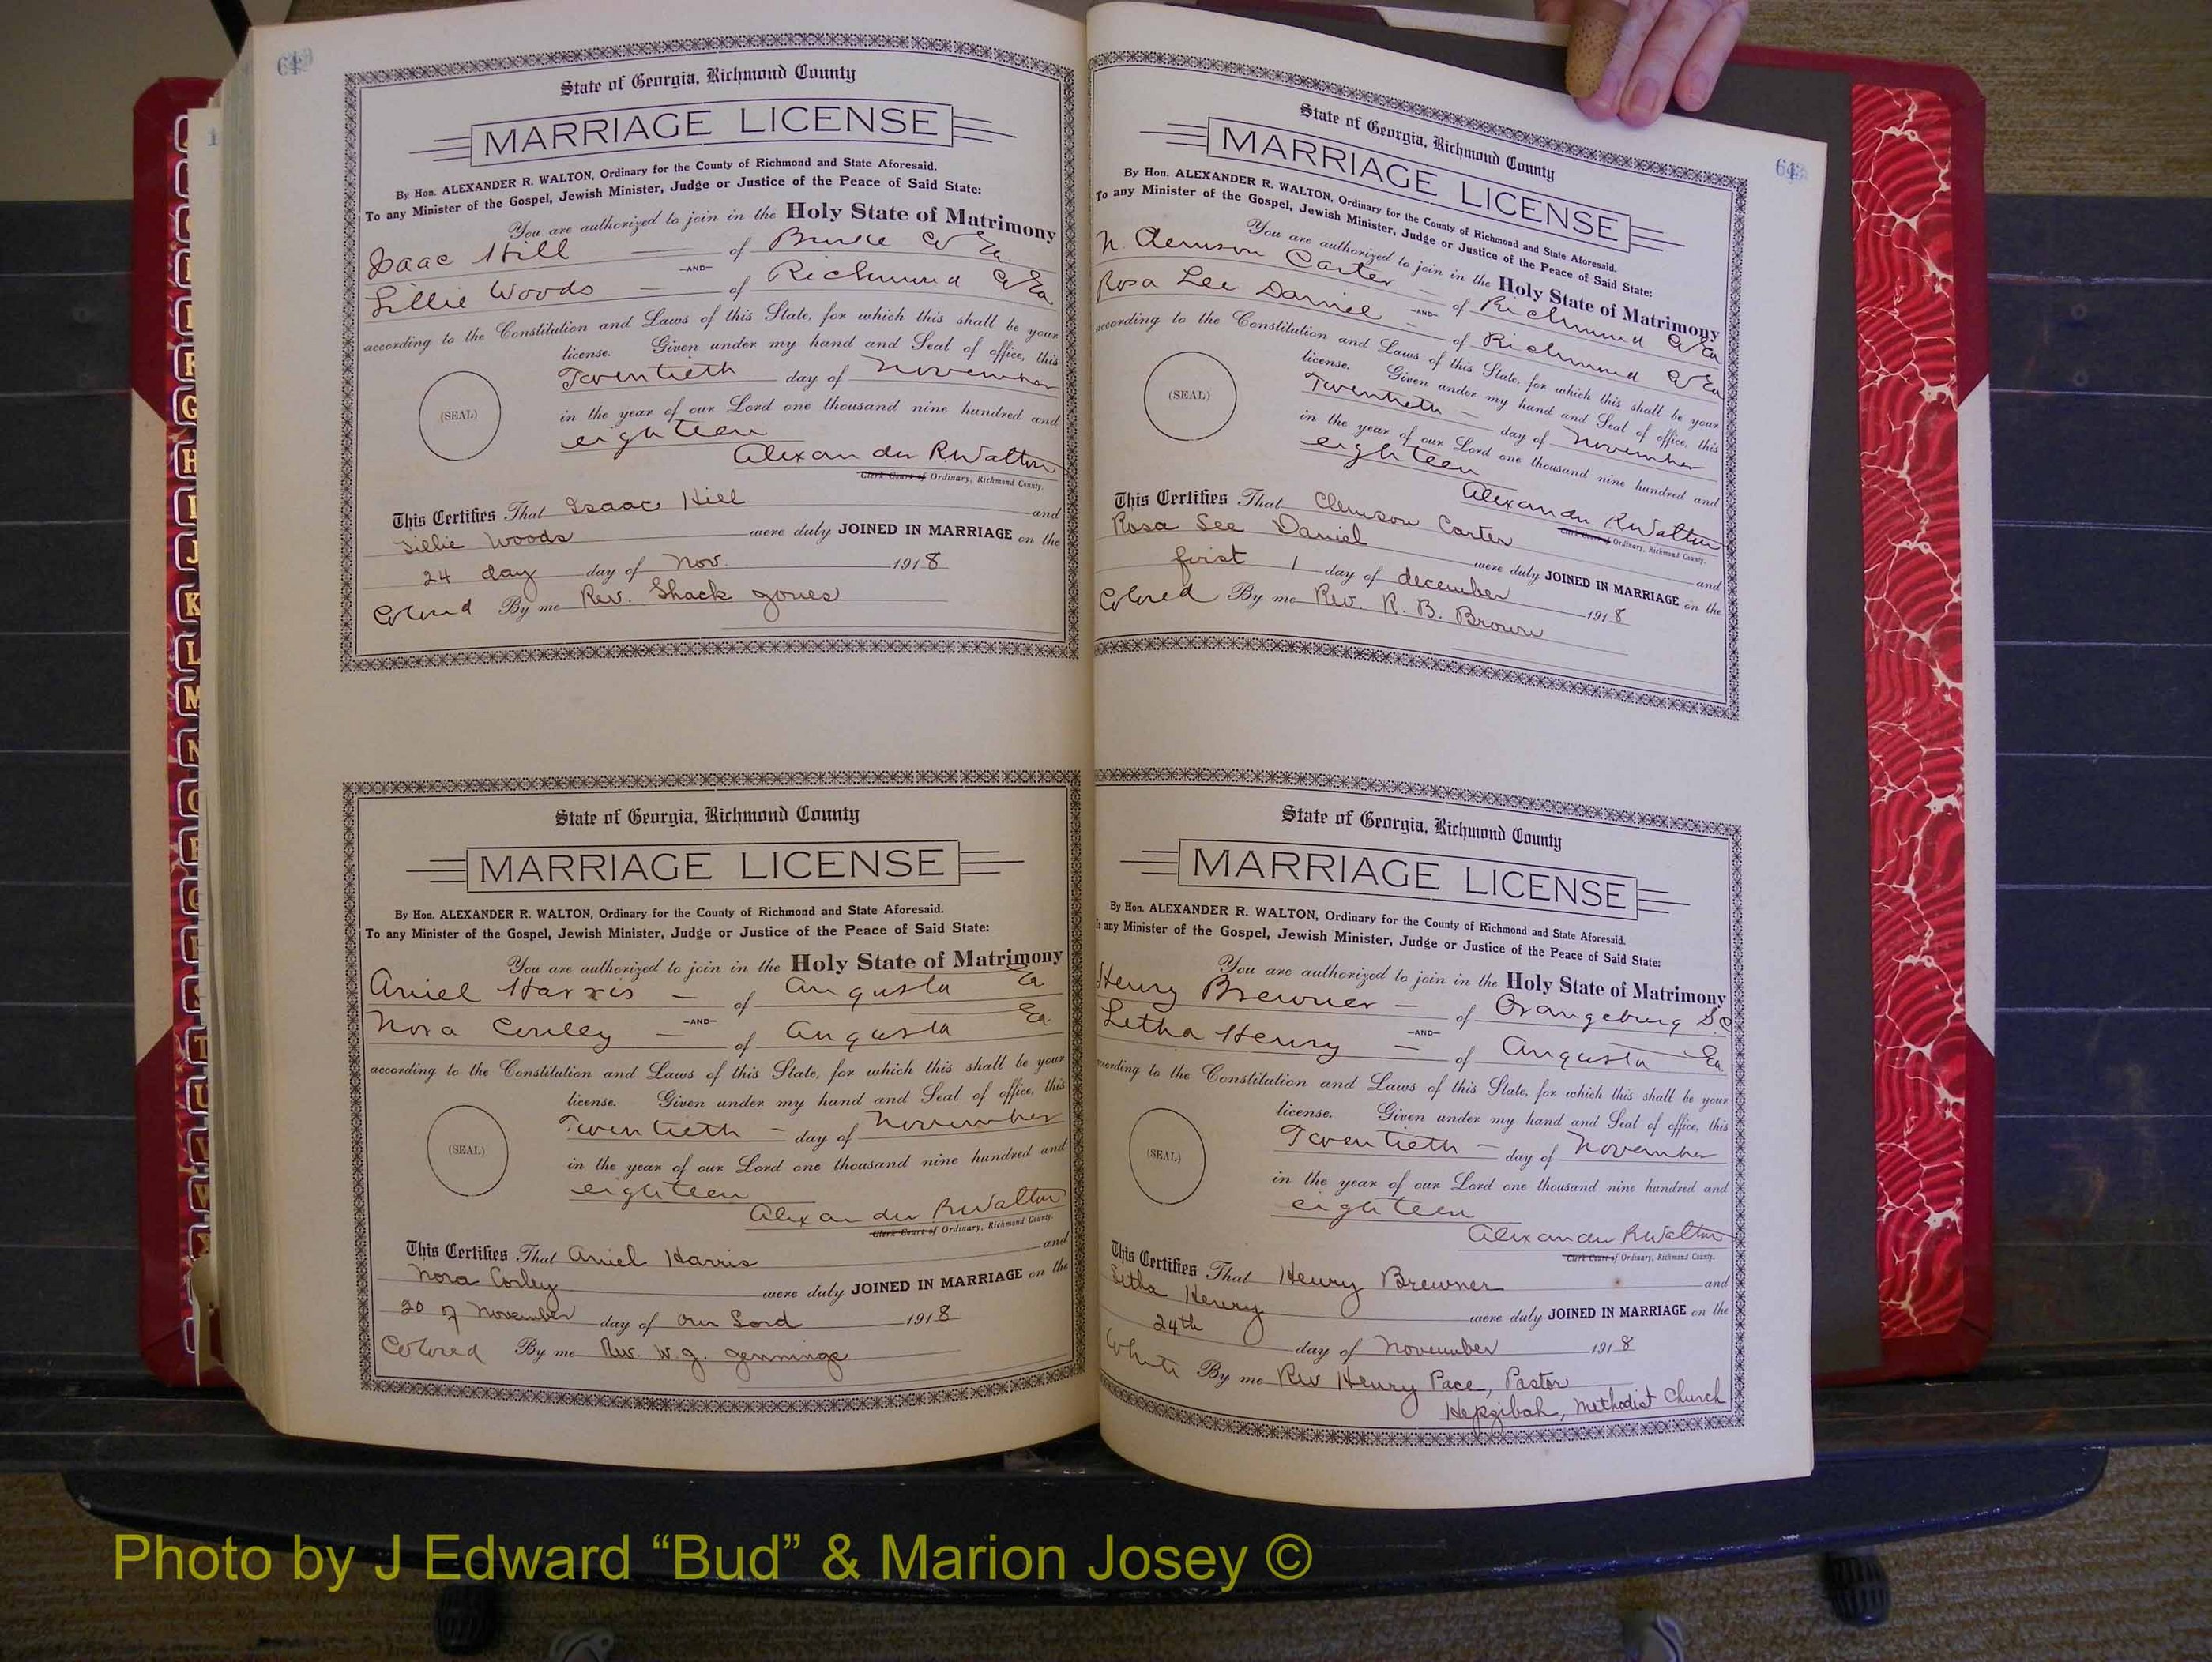 642
State of Georgia, Richmond County
MARRIAGE LICENSE
By Hon. ALEXANDER R. WALTON, Ordinary for the County of Richmond and State Aforesaid.
To any Minister of the Gospel, Jewish Minister, Judge or Justice of the Peace of Said State:
You are authorized to join in the Holy State of Matrimony
Isaac Hill of Burke Co Ga
—AND—
Lillie Woods of Richmond Co Ga
according to the Constitution and Laws of this State, for which this shall be your
license. Given under my hand and Seal of office, this
Twentieth day of November
(SEAL)
in the year of our Lord one thousand nine hundred and
eighteen
Alexander R Walton
Clerk Court of Ordinary, Richmond County.
This Certifies That Isaac Hill and
Lillie Woods were duly JOINED IN MARRIAGE on the
24 day day of Nov. 1918
Colored By me Rev. Shack Jones
State of Georgia, Richmond County
MARRIAGE LICENSE
By Hon. ALEXANDER R. WALTON, Ordinary for the County of Richmond and State Aforesaid.
To any Minister of the Gospel, Jewish Minister, Judge or Justice of the Peace of Said State:
You are authorized to join in the Holy State of Matrimony
Aniel Harris — of Augusta Ga
—AND—
Nora Conley — of Augusta Ga
according to the Constitution and Laws of this State, for which this shall be your
license. Given under my hand and Seal of office, this
Twentieth — day of November
(SEAL)
in the year of our Lord one thousand nine hundred and
eighteen
Alexander R Walton
Clerk Court of Ordinary, Richmond County.
This Certifies That Aniel Harris and
Nora Corley were duly JOINED IN MARRIAGE on the
20 of November day of Our Lord 1918
Colored By me Rev. W. J. Jennings
643
State of Georgia, Richmond County
MARRIAGE LICENSE
By Hon. ALEXANDER R. WALTON, Ordinary for the County of Richmond and State Aforesaid.
To any Minister of the Gospel, Jewish Minister, Judge or Justice of the Peace of Said State:
You are authorized to join in the Holy State of Matrimony
Carter — of Richmond Co Ga
—AND—
Rosa Lee Daniel — of Richmond Co Ga
according to the Constitution and Laws of this State, for which this shall be your
license. Given under my hand and Seal of office, this
Twentieth — day of November
(SEAL)
in the year of our Lord one thousand nine hundred and
eighteen
Alexander R Walton
Clerk Court of Ordinary, Richmond County.
This Certifies That Clemson Carter and
Rosa Lee Daniel were duly JOINED IN MARRIAGE on the
first 1 day of december 1918
Colored By me Rev. R. B. Brown
State of Georgia, Richmond County
MARRIAGE LICENSE
By Hon. ALEXANDER R. WALTON, Ordinary for the County of Richmond and State Aforesaid.
To any Minister of the Gospel, Jewish Minister, Judge or Justice of the Peace of Said State:
You are authorized to join in the Holy State of Matrimony
Henry Brewner — of Orangeburg S.C
—AND—
Letha Henry — of Augusta Ga
according to the Constitution and Laws of this State, for which this shall be your
license. Given under my hand and Seal of office, this
Twentieth — day of November
(SEAL)
in the year of our Lord one thousand nine hundred and
eighteen
Alexander R Walton
Clerk Court of Ordinary, Richmond County.
This Certifies That Henry Brewner and
Letha Henry were duly JOINED IN MARRIAGE on the
24th day of November 1918
White By me Rev Henry Pace, Pastor
Hepzibah, Methodist Church
G
H
I
J
K
L
M
N
Photo by J Edward “Bud” & Marion Josey ©